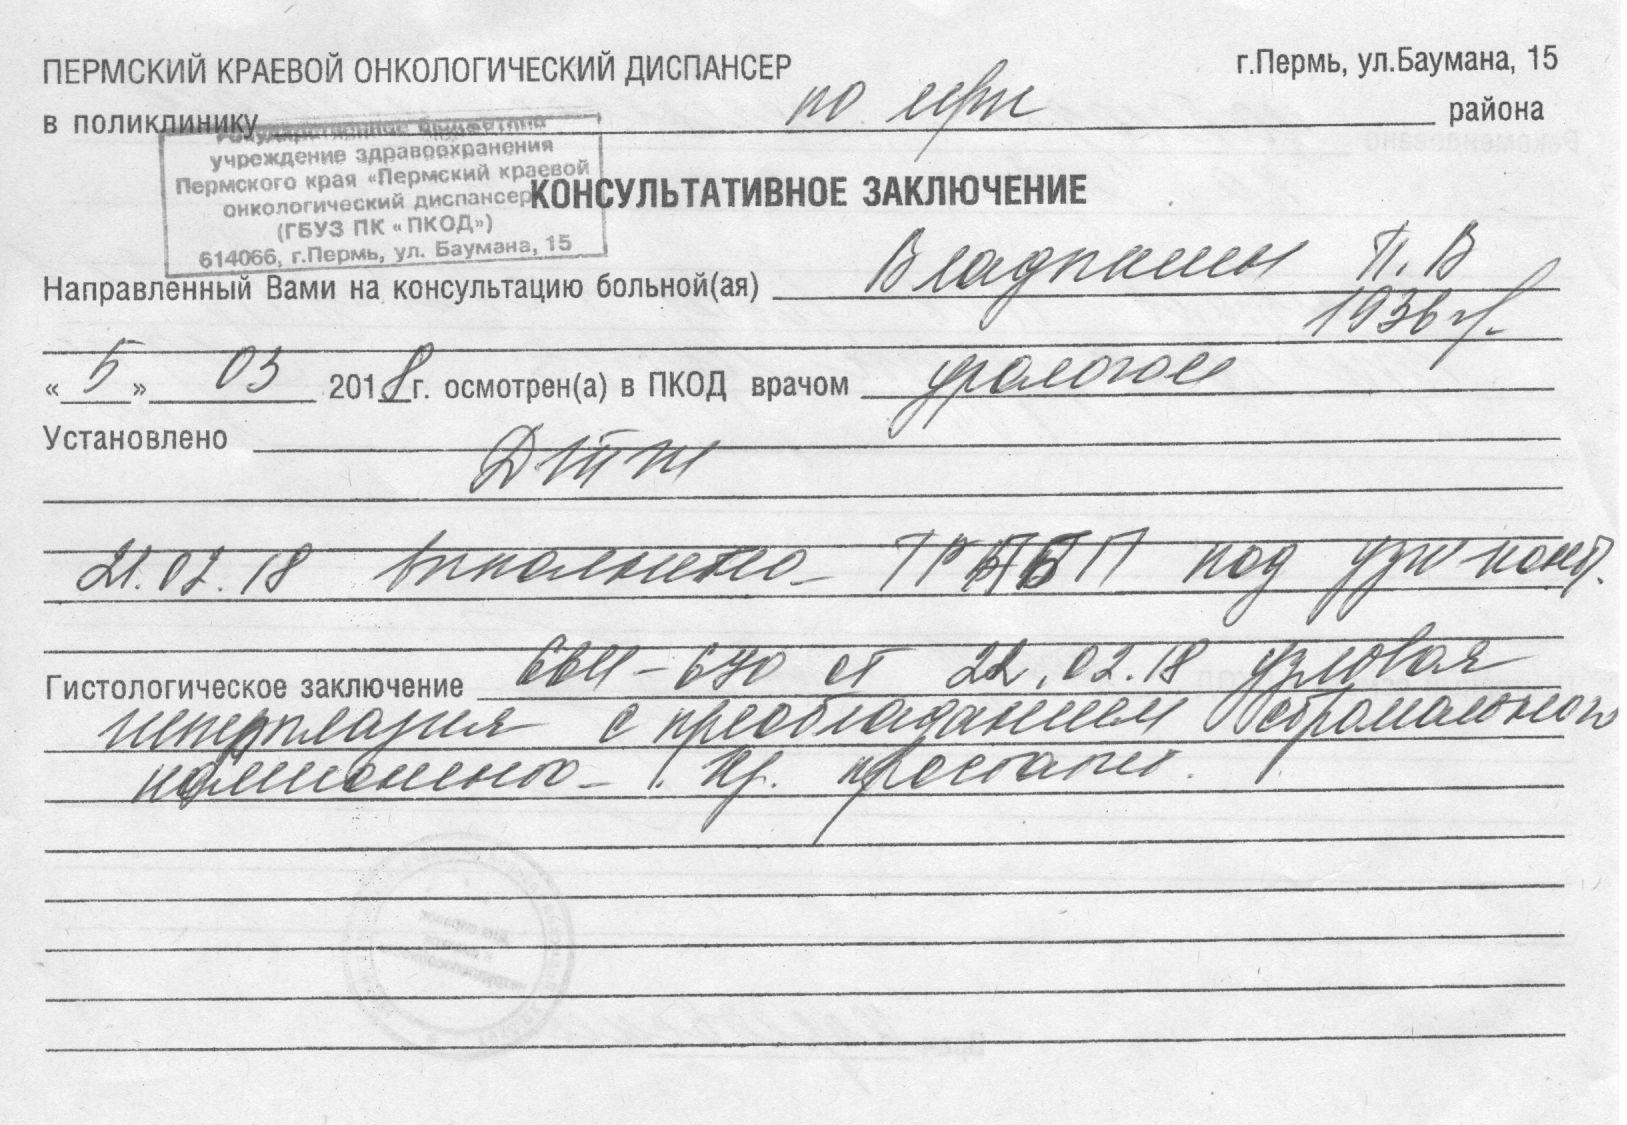 ПЕРМСКИЙ КРАЕВОЙ ОНКОЛОГИЧЕСКИЙ ДИСПАНСЕР г.Пермь, ул.Баумана, 15
в поликлинику по м/ж района
Государственное бюджетное
учреждение здравоохранения
Пермского края «Пермский краевой
онкологический диспансер
(ГБУЗ ПК «ПКОД»)
614066, г.Пермь, ул. Баумана, 15
КОНСУЛЬТАТИВНОЕ ЗАКЛЮЧЕНИЕ
Направленный Вами на консультацию больной(ая) П.В
1936 г.
«5» 03 2018г. осмотрен(а) в ПКОД врачом урологом
Установлено
ДГПЖ
21.02.18 выполнено под узи конт.
Гистологическое заключение от 22.02.18 узловая
гиперплазия с преобладанием стромального
компонента простаты.